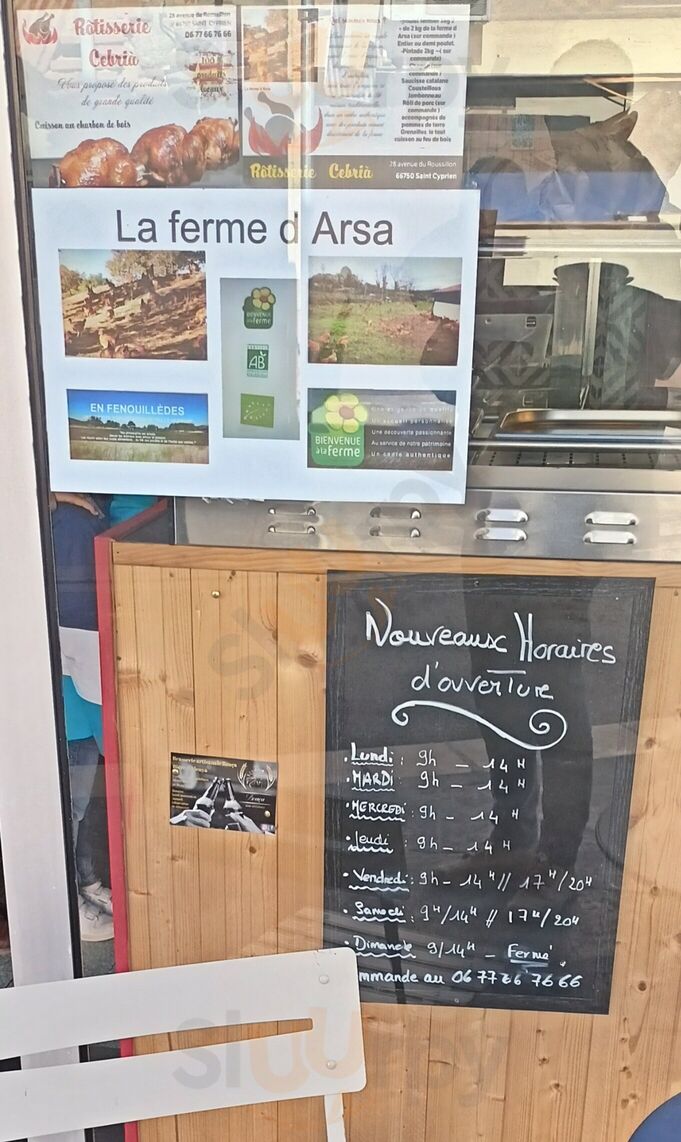 Rôtisserie
Cebrià
28 avenue du Roussillon
66750 SAINT CYPRIEN
06 77 66 76 66
Vous propose des produits
de grande qualité
Cuisson au charbon de bois
100 %
produits
locaux
Arsa (sur commande)
Entier ou demi poulet.
-Pintade 2kg – ( sur
commande)
commande )
Saucisse catalane
Coustellous
Jambonneau
Rôti de porc (sur
commande )
accompagnés de
pommes de terre
Grenailles. le tout
cuisson au feu de bois
Rôtisserie Cebrià
28 avenue du Roussillon
66750 Saint Cyprien
La ferme d Arsa
BIENVENUE
à la ferme
AB
EN FENOUILLÈDES
BIENVENUE
à la ferme
Un accueil personnalisé
Une découverte passionnante
Au service de notre patrimoine
Un cadre authentique
Nouveaux Horaires
d'ouverture
. Lundi : 9h – 14H
. MARDI : 9h – 14H
. MERCREDI : 9h – 14H
. Jeudi : 9h – 14H
. Vendredi : 9h – 14H // 17H/20H
. Samedi : 9H/14H // 17H/20H
. Dimanche 9/14H – Fermé.
mmande au 06 77 66 76 66
Brasserie artisanale
sluurpy